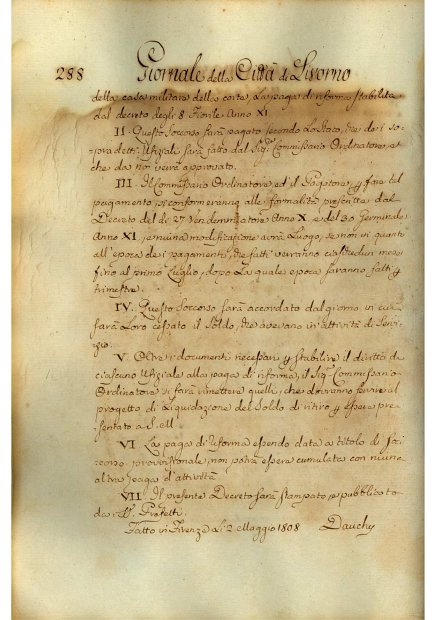 288 Giornale della Città di Livorno
della casa militare della corte, La paga di riforma stabilita
dal decreto degli 8 Fiorile Anno XI.
II. Questo Soccorso sarà pagato secondo Lo Stato, che dei so-
pradetti Ufiziali sarà fatto dal Sigr. Commissario Ordinatore, e
che da noi verrà approvato.
III. Il Commissario Ordinatore, ed il Pagatore p fare tal
pagamento si conformeranno alle formalità prescritte dal
Decreto del dì 27 Vendemmiatore Anno X. e del 30 Germinale
Anno XI, e niuna modificazione avrà Luogo, se non in quanto
all'epoca dei pagamenti, che fatti verranno ciaschedun mese
fino al primo Luglio, dopo La quale epoca saranno fatti p
trimestre.
IV. Questo Soccorso sarà accordato dal giorno in cui
sarà Loro cessato il Soldo, che avevano in attività di Servi-
zio.
V. Oltre i documenti necessari p stabilire il diritto di
ciascuno Ufiziale alla paga di riforma, il Sigr. Commissario
Ordinatore si farà rimettere quelli, che dovranno servire al
progetto di Liquidazione del Soldo di ritiro p essere pre-
sentato a S. M.
VI. La paga di riforma essendo data a titolo di Soc-
corso provvisionale, non potrà essere cumulata con niuna
altra paga d'attività
VII. Il presente Decreto sarà stampato, e pubblicato
da Prefetti.
Fatto in Firenze Li 2 Maggio 1808 Dauchy